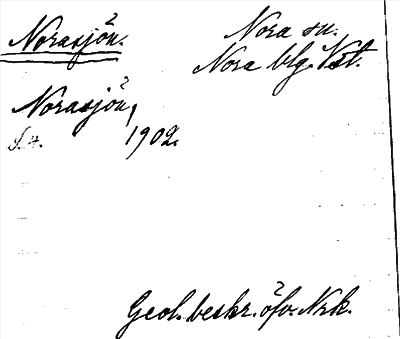 Norasjön.
Nora sn.
Nora blg. Vstl.
Norasjön,
S. 4. 1902.
Geol. beskr. öfv. Nrk.